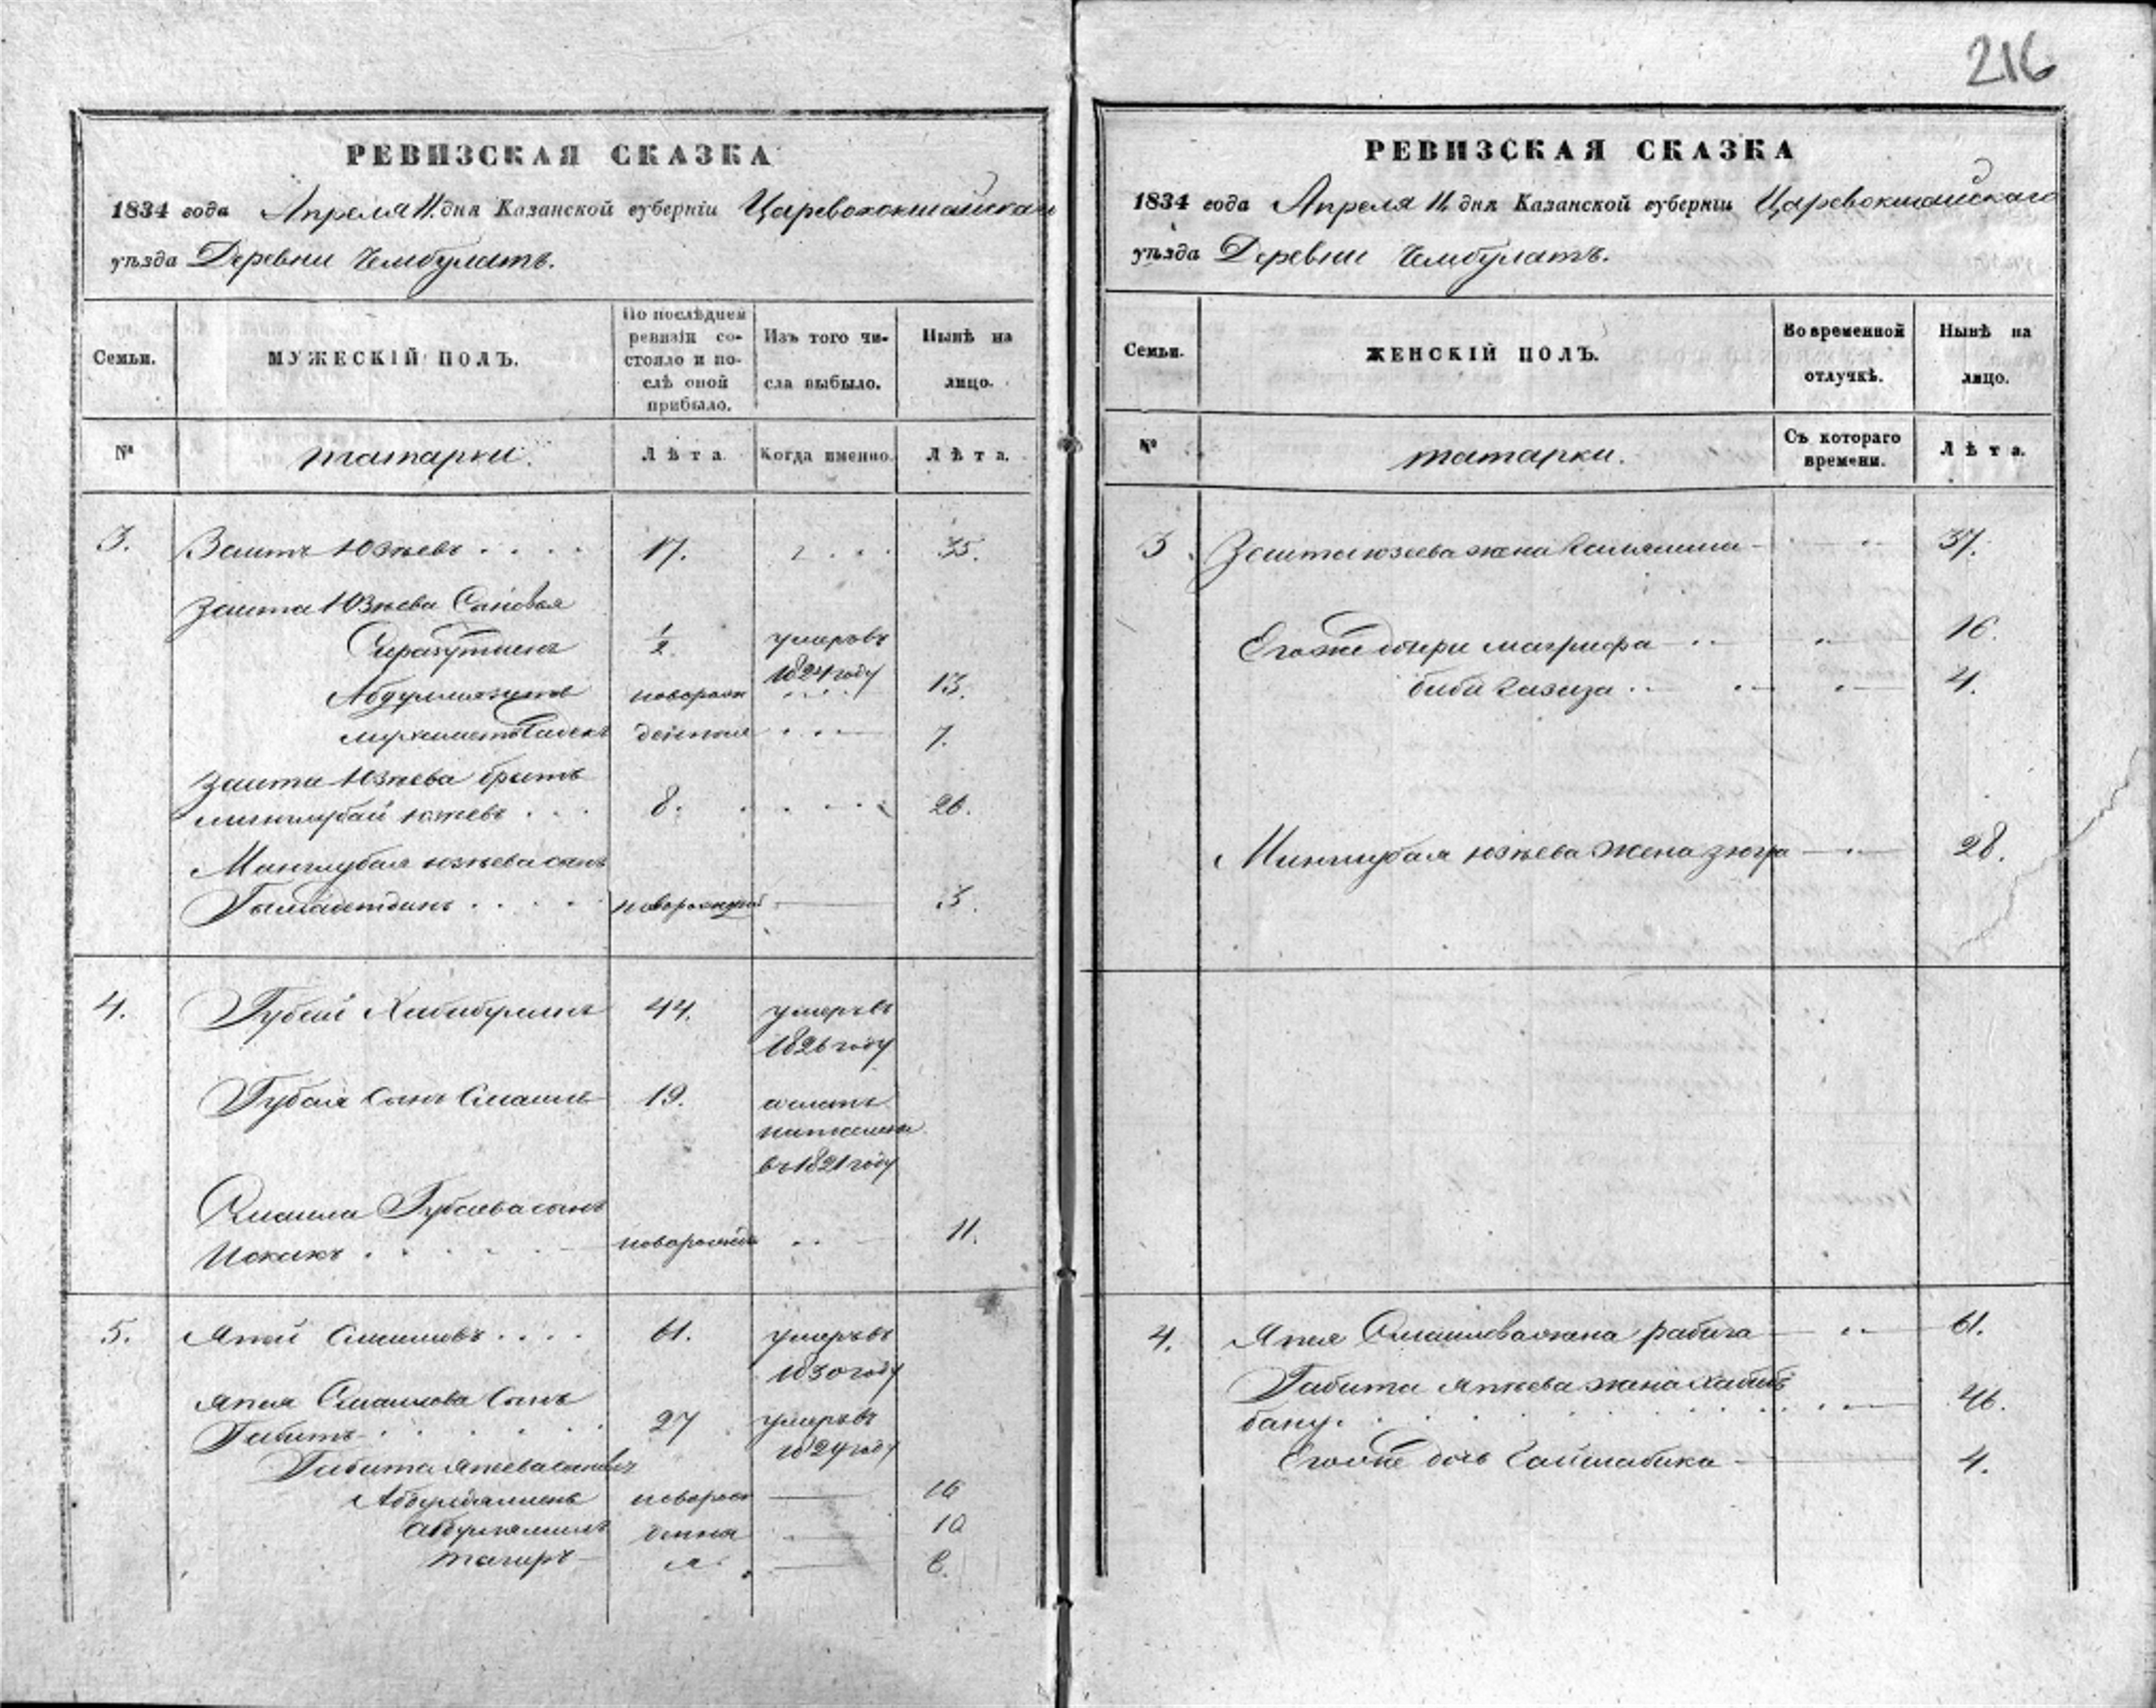 216
РЕВИЗСКАЯ СКАЗКА
1834 года Апреля 11 дня Казанской губернии Царевококшайскаго
уѣзда Деревни Чембулатъ.
Семьи.
МУЖЕСКІЙ ПОЛЪ.
По послѣдней ревизіи состояло и послѣ оной прибыло.
Изъ того числа выбыло.
Нынѣ на лицо.
№
татарки.
Лѣта
Когда именно.
Лѣта.
3. Заитъ Юзѣевъ . . . . 17. 35.
Заита Юзѣева Сыновья
½ умеръ въ
1824 году
новорож 13.
денныя 7.
Заита Юзѣева братъ
Минлубай Юзѣевъ . . . 8. 26.
Минлубая Юзѣева сынъ
новорожденной 3.
4. Губей Хабибулинъ 44. умеръ въ
1826 году
Губея сынъ Смаилъ 19.
въ 1821 году
Смаила Губеева сынъ
Искакъ . . . . новорожден 11.
5. Япей Смаиловъ . . . . 61. умеръ въ
1830 году
Япея Смаилова сынъ
Габитъ 27 умеръ въ
году
Габита Япеева сыновья
новорож 16
денныя 10
Тагиръ я
РЕВИЗСКАЯ СКАЗКА
1834 года Апреля 11 дня Казанской губерніи Царевокшайскаго
уѣзда Деревни Чембулатъ.
Семьи.
ЖЕНСКІЙ ПОЛЪ.
Во временной отлучкѣ.
Нынѣ на лицо.
№
татарки.
Съ котораго времени.
Лѣта.
3 Заита Юзеева жена 37.
Егоже дочери Магрифа 16.
биби Газиза 4.
Минлубая Юзѣева жена Зюгра 28.
4. Япея Смаилова жена Рабига 61.
Габита Япѣева жена Хабиб
бану 46.
Егоже дочь Гайшабика 4.